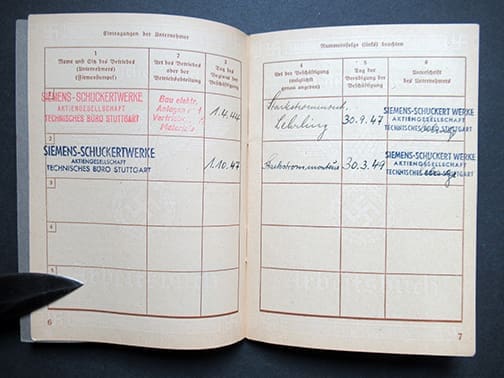 Eintragungen der Unternehmer
1
Name und Sitz des Betriebes
(Unternehmers)
(Firmenstempel)
2
Art des Betriebes
oder der
Betriebsabteilung
3
Tag des
Beginns der
Beschäftigung
1
SIEMENS-SCHUCKERTWERKE
AKTIENGESELLSCHAFT
TECHNISCHES BÜRO STUTTGART
Bau elektr.
Anlagen
Vertrieb
Material
1.4.44
2
SIEMENS-SCHUCKERTWERKE
AKTIENGESELLSCHAFT
TECHNISCHES BÜRO STUTTGART
1.10.47
3
4
5
Arbeitsbuch
6
Nummernfolge (links) beachten
4
Art der Beschäftigung
(möglichst
genau angeben)
5
Tag der
Beendigung der
Beschäftigung
6
Unterschrift
des Unternehmers
Lehrling
30.9.47
SIEMENS-SCHUCKERTWERKE
AKTIENGESELLSCHAFT
TECHNISCHES BÜRO STUTTGART
Starkstrommonteur
30.3.49
SIEMENS-SCHUCKERTWERKE
AKTIENGESELLSCHAFT
TECHNISCHES BÜRO STUTTGART
Arbeitsbuch
7